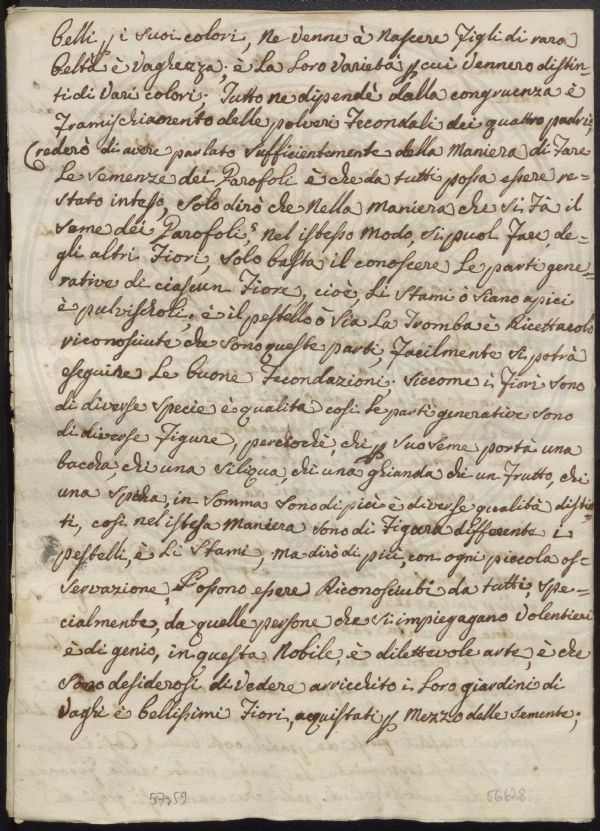 belli p i suoi colori, Ne venne à Nascere Figli di rara
beltà è Vaghezza; è La Loro Varietà p cui Vennero distin=
ti di Vari colori; Tutto ne dipendè dalla congruenza è
Framischiamento delle polveri Fecondali dei quattro padri;
Crederò di avere parlato sufficientemente della Maniera di Fare
Le Semenze dei Garofoli è che da tutti possa essere re=
stato inteso, Solo dirò che Nella Maniera che si Fà il
seme dei Garofoli, Nel istesso Modo, si puol Fare, de=
gli altri Fiori, Solo basta il conoscere Le parti gene=
rative di ciascun Fiore, cioè, Li Stami ò siano apici
è pulvischoli, è il pestello ò sia La Tromba è Ricettacolo
riconosciute che sono queste parti, Facilmente si potrà
eseguire Le buone Fecondazioni; siccome i Fiori sono
di diverse specie è qualità cosi le parti generative sono
di diverse Figure, perciochè, chi p suo seme portà una
baccha, chi una siliqua, chi una ghianda chi un Frutto, chi
una Spicha, in somma sono di più è diverse qualità distin
ti, cosi nel istessa Maniera sono di Figura differente i
pestelli, è Li Stami, ma dirò di più, con ogni piccola os=
servazione, Possono essere Riconosciuti da tutti, spe=
cialmente, da quelle persone che si impiegagano Volentieri
è di genio, in questa Nobile, è dilettevole arte, è che
sono desiderosi di Vedere arricchito i Loro giardini di
Vaghi è bellissimi Fiori, acquistati p Mezzo delle semente;
57,59
56628